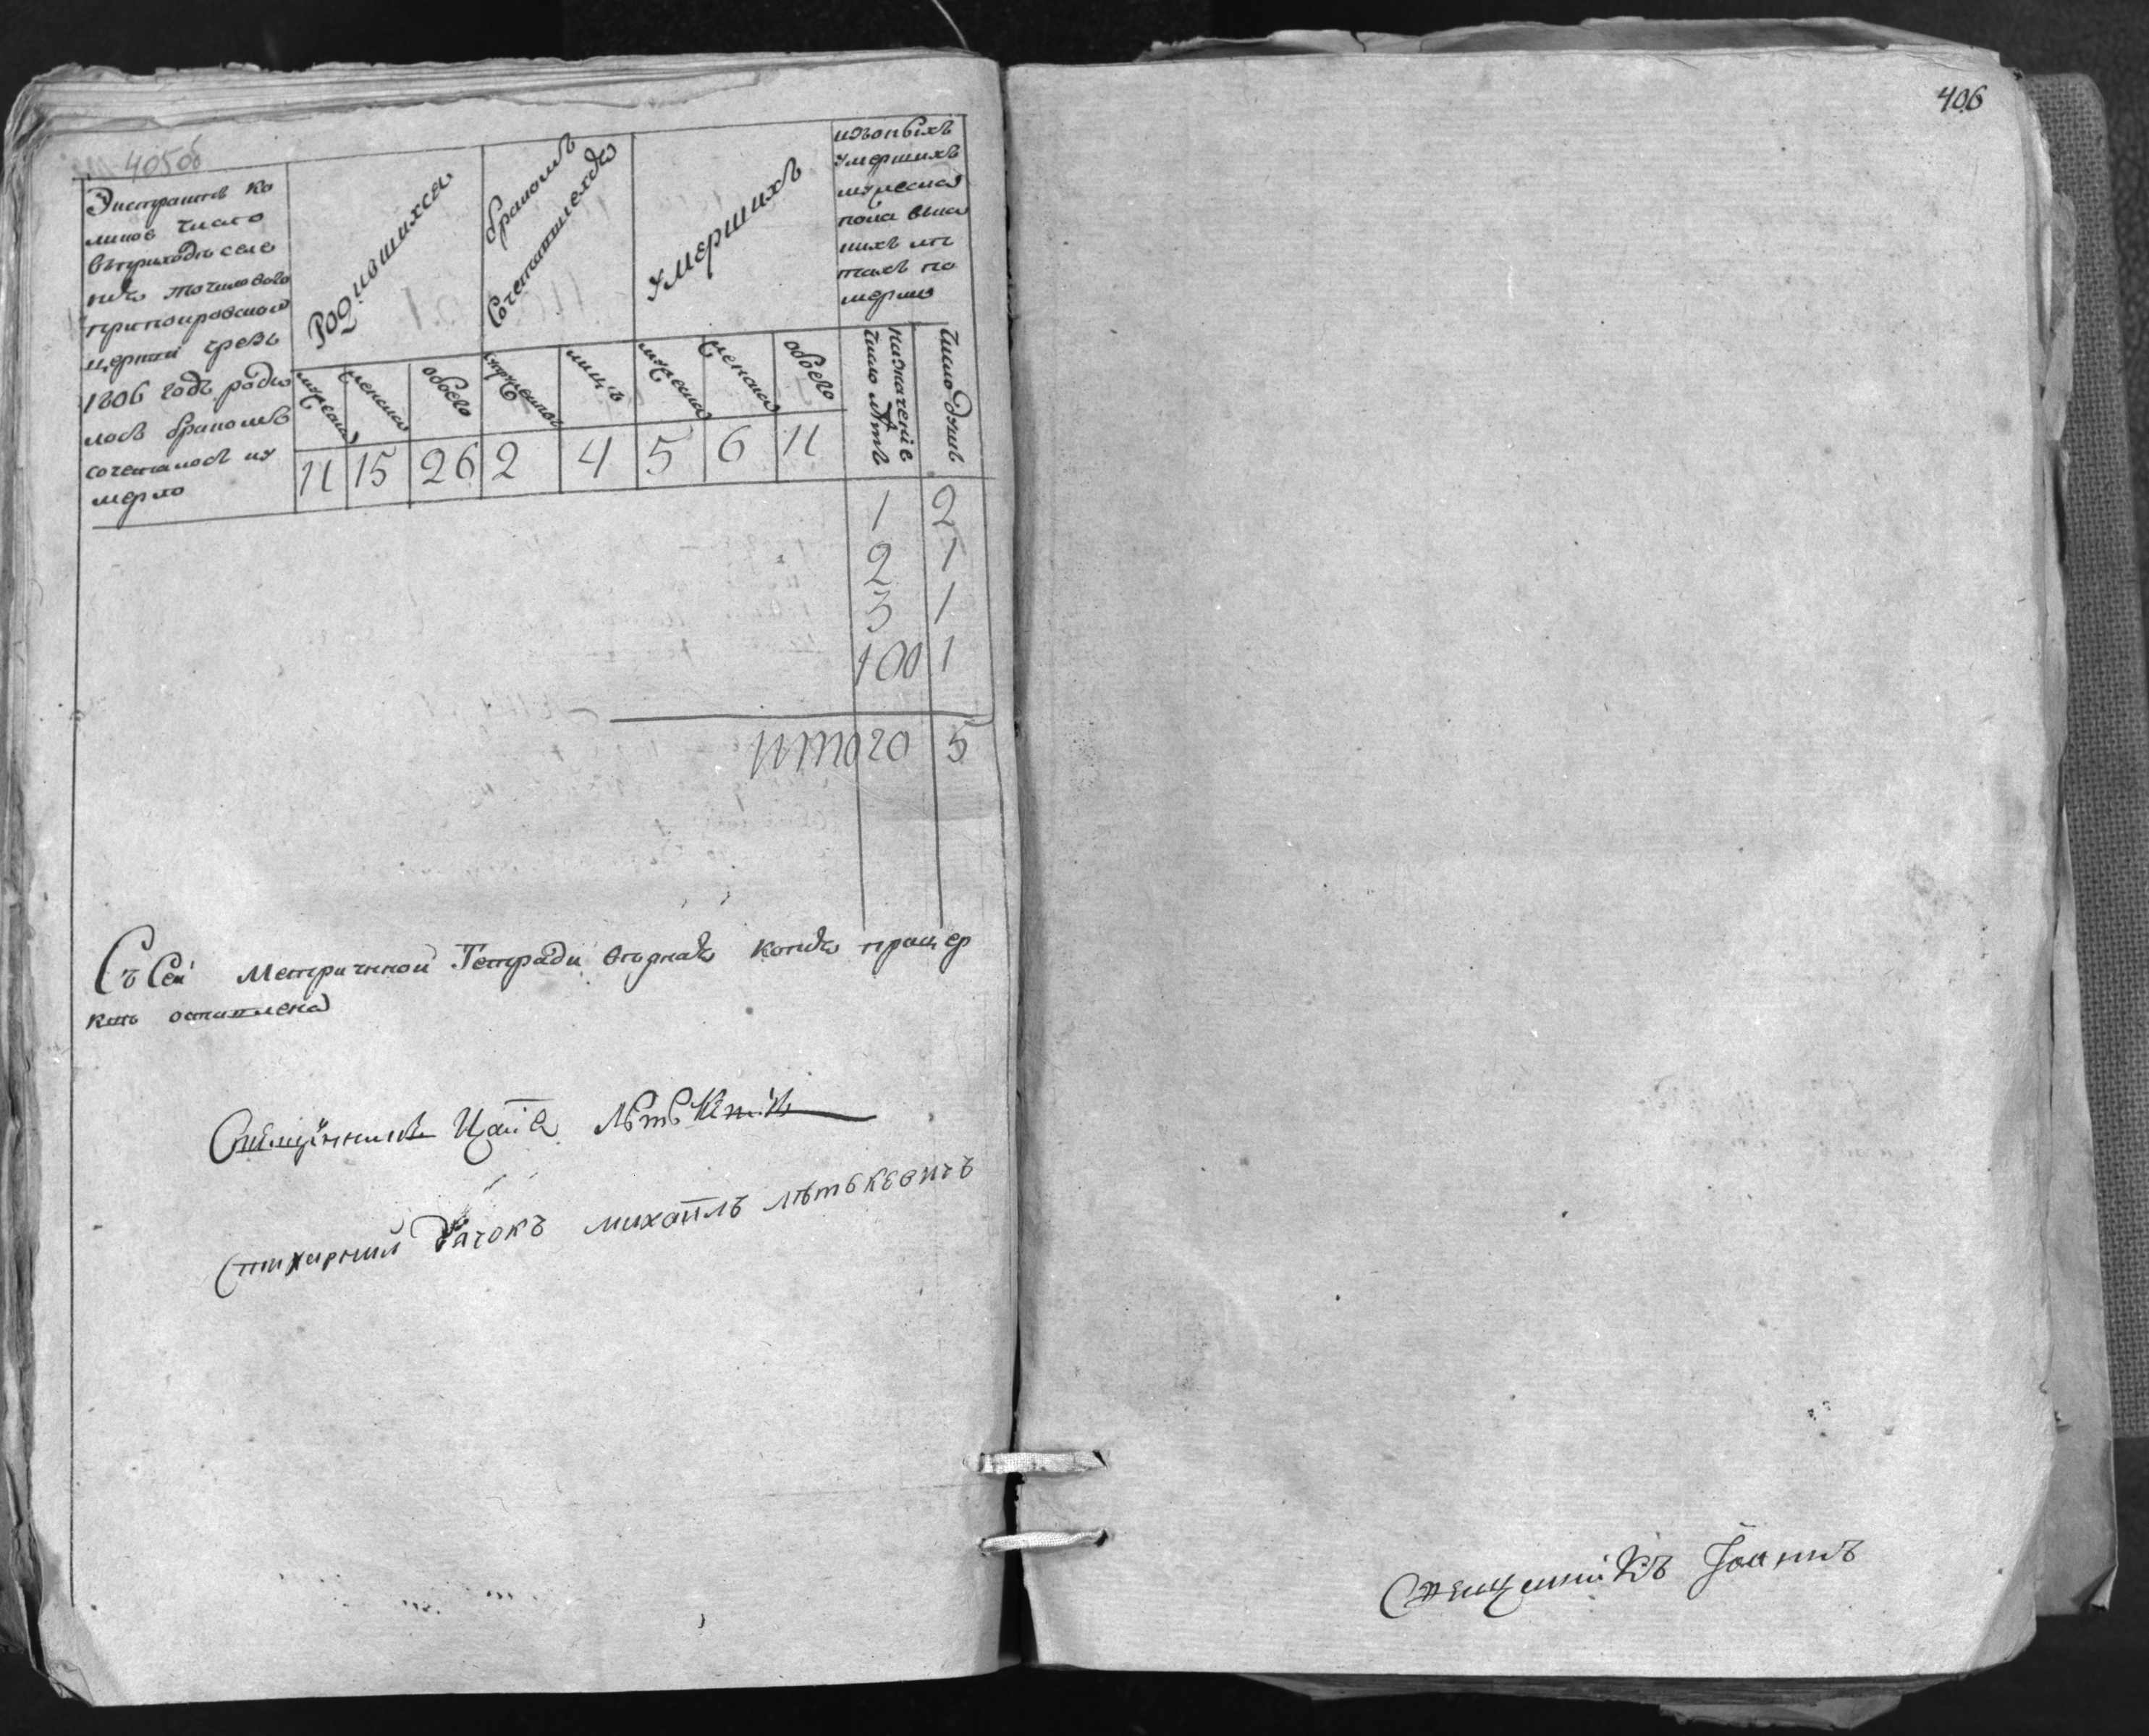 405об
Экстрактъ ко
ликое число
въ приходѣ селе
нія
покровской
церкви чрезъ
1806 годъ роди
лось бракомъ
сочеталось и у
мерло
Родившихся
бракомъ
Сочетавшехся
Умершихъ
изъ оныхъ
Умершихъ
мужеска
пола въ ка
кихъ лѣ
тахъ по
мерли
мужеска
женска
обоего
супружествъ
лицъ
мужеска
женска
обоего
назначеніе
число лѣтъ
число душъ
11 15 26 2 4 5 6 11
1 2
2 1
3 1
100 1
итого 5
Съ Сей Метричнной Тетради вѣрная копія при цер
квѣ оставлена
Священникъ
Стихарний Дячокъ михаилъ лѣтькевичъ
406
Священникъ Іоаннъ